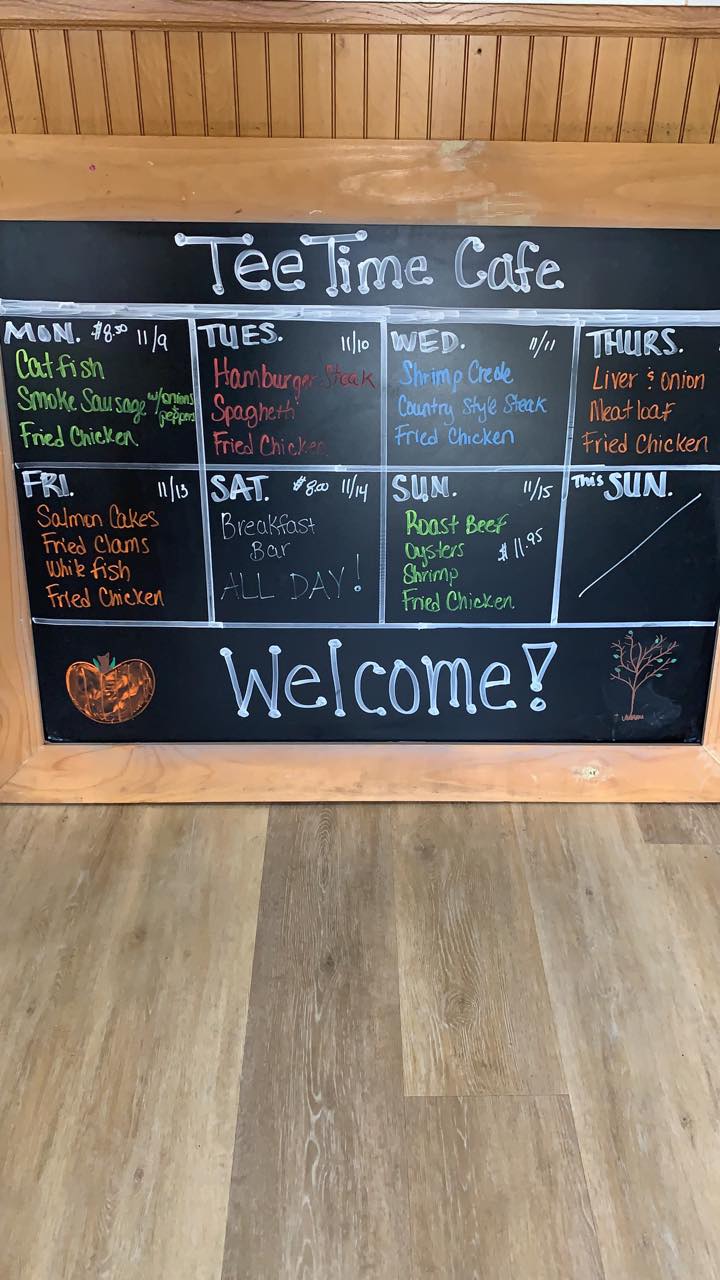 Tee Time Cafe
MON. $8.50 11/9
Catfish
Smoke Sausage w/onions & peppers
Fried Chicken
TUES. 11/10
Hamburger Steak
Spaghetti
Fried Chicken
WED. 11/11
Shrimp Creole
Country Style Steak
Fried Chicken
THURS.
Liver & Onion
Meatloaf
Fried Chicken
FRI. 11/13
Salmon Cakes
Fried Clams
White fish
Fried Chicken
SAT. $8.00 11/14
Breakfast
Bar
ALL DAY!
SUN. 11/15
Roast Beef
Oysters $11.95
Shrimp
Fried Chicken
This SUN.
Welcome!